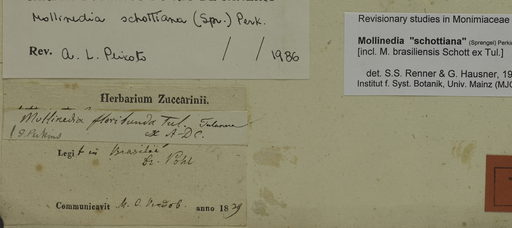 Mollinedia schottiana (Spr.) Perk.
Rev. A. L. Peixoto / / 1986
Revisionary studies in Monimiaceae
Mollinedia "schottiana" (Sprengel) Perkins
[incl. M. brasiliensis Schott ex Tul.]
det. S.S. Renner & G. Hausner, 19
Institut f. Syst. Botanik, Univ. Mainz (MJG
Herbarium Zuccarinii.
Mollinedia floribunda Tul. Tulasne
ex A. DC.
J. Perkins
Legit in Brasilia
Dr. Pohl
Communicavit M. C. Vindob. anno 1829